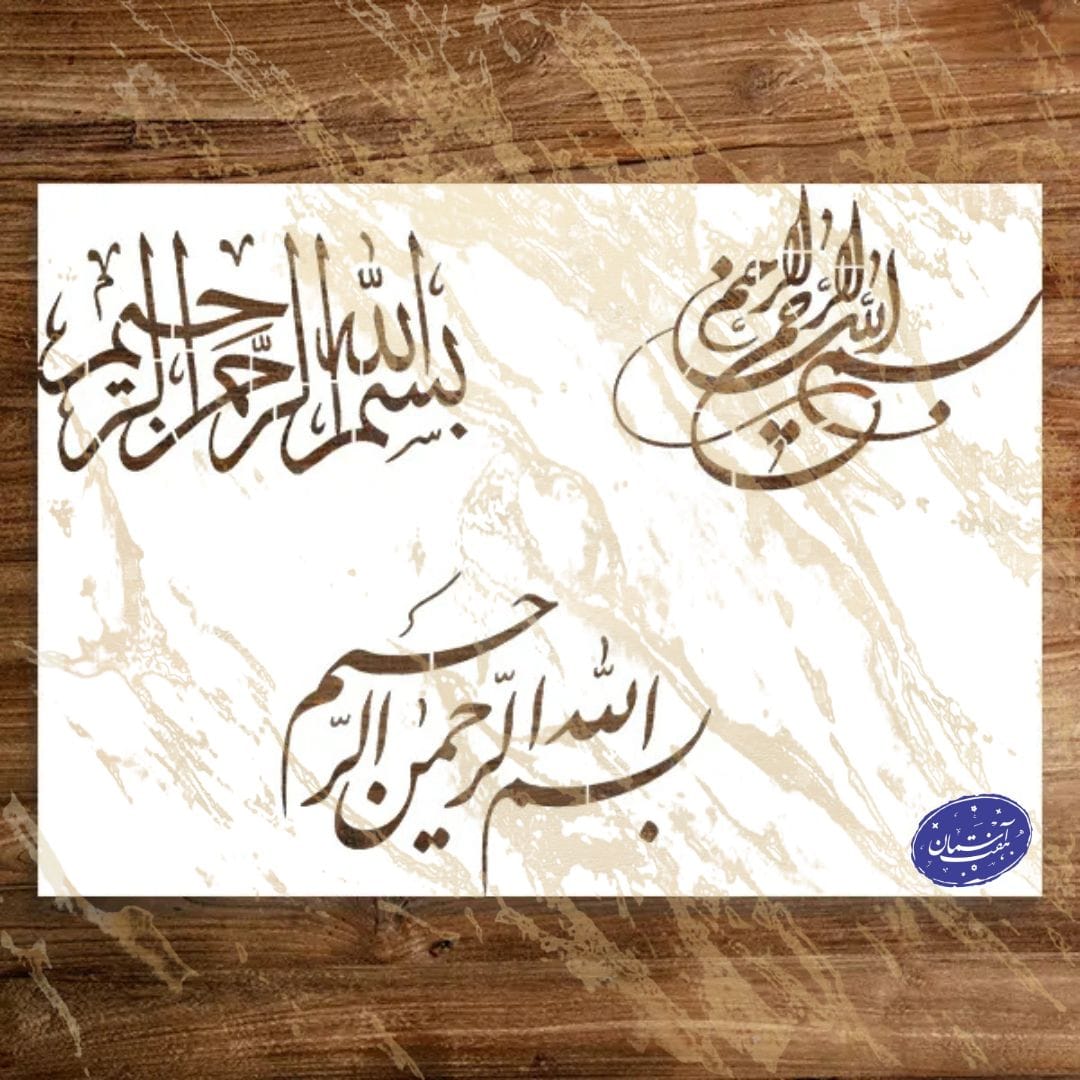 بسم الله الرحمن الرحیم
بسم الله الرحمن الرحیم
بسم الله الرحمن الرحیم
هفت آسمان